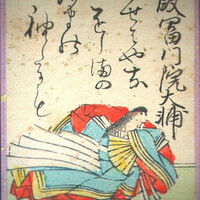 殷富門院大輔
見せはやな
をしまの
あまの
袖たにも